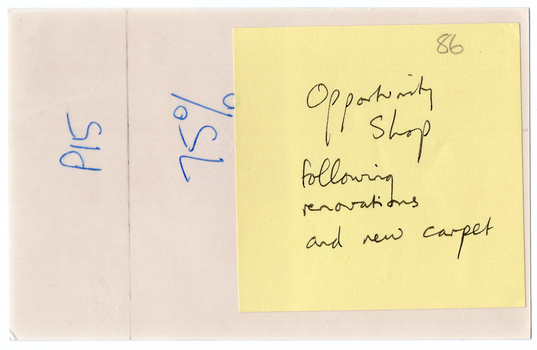 P15
75%
86
Opportunity
Shop
following
renovations
and new carpet